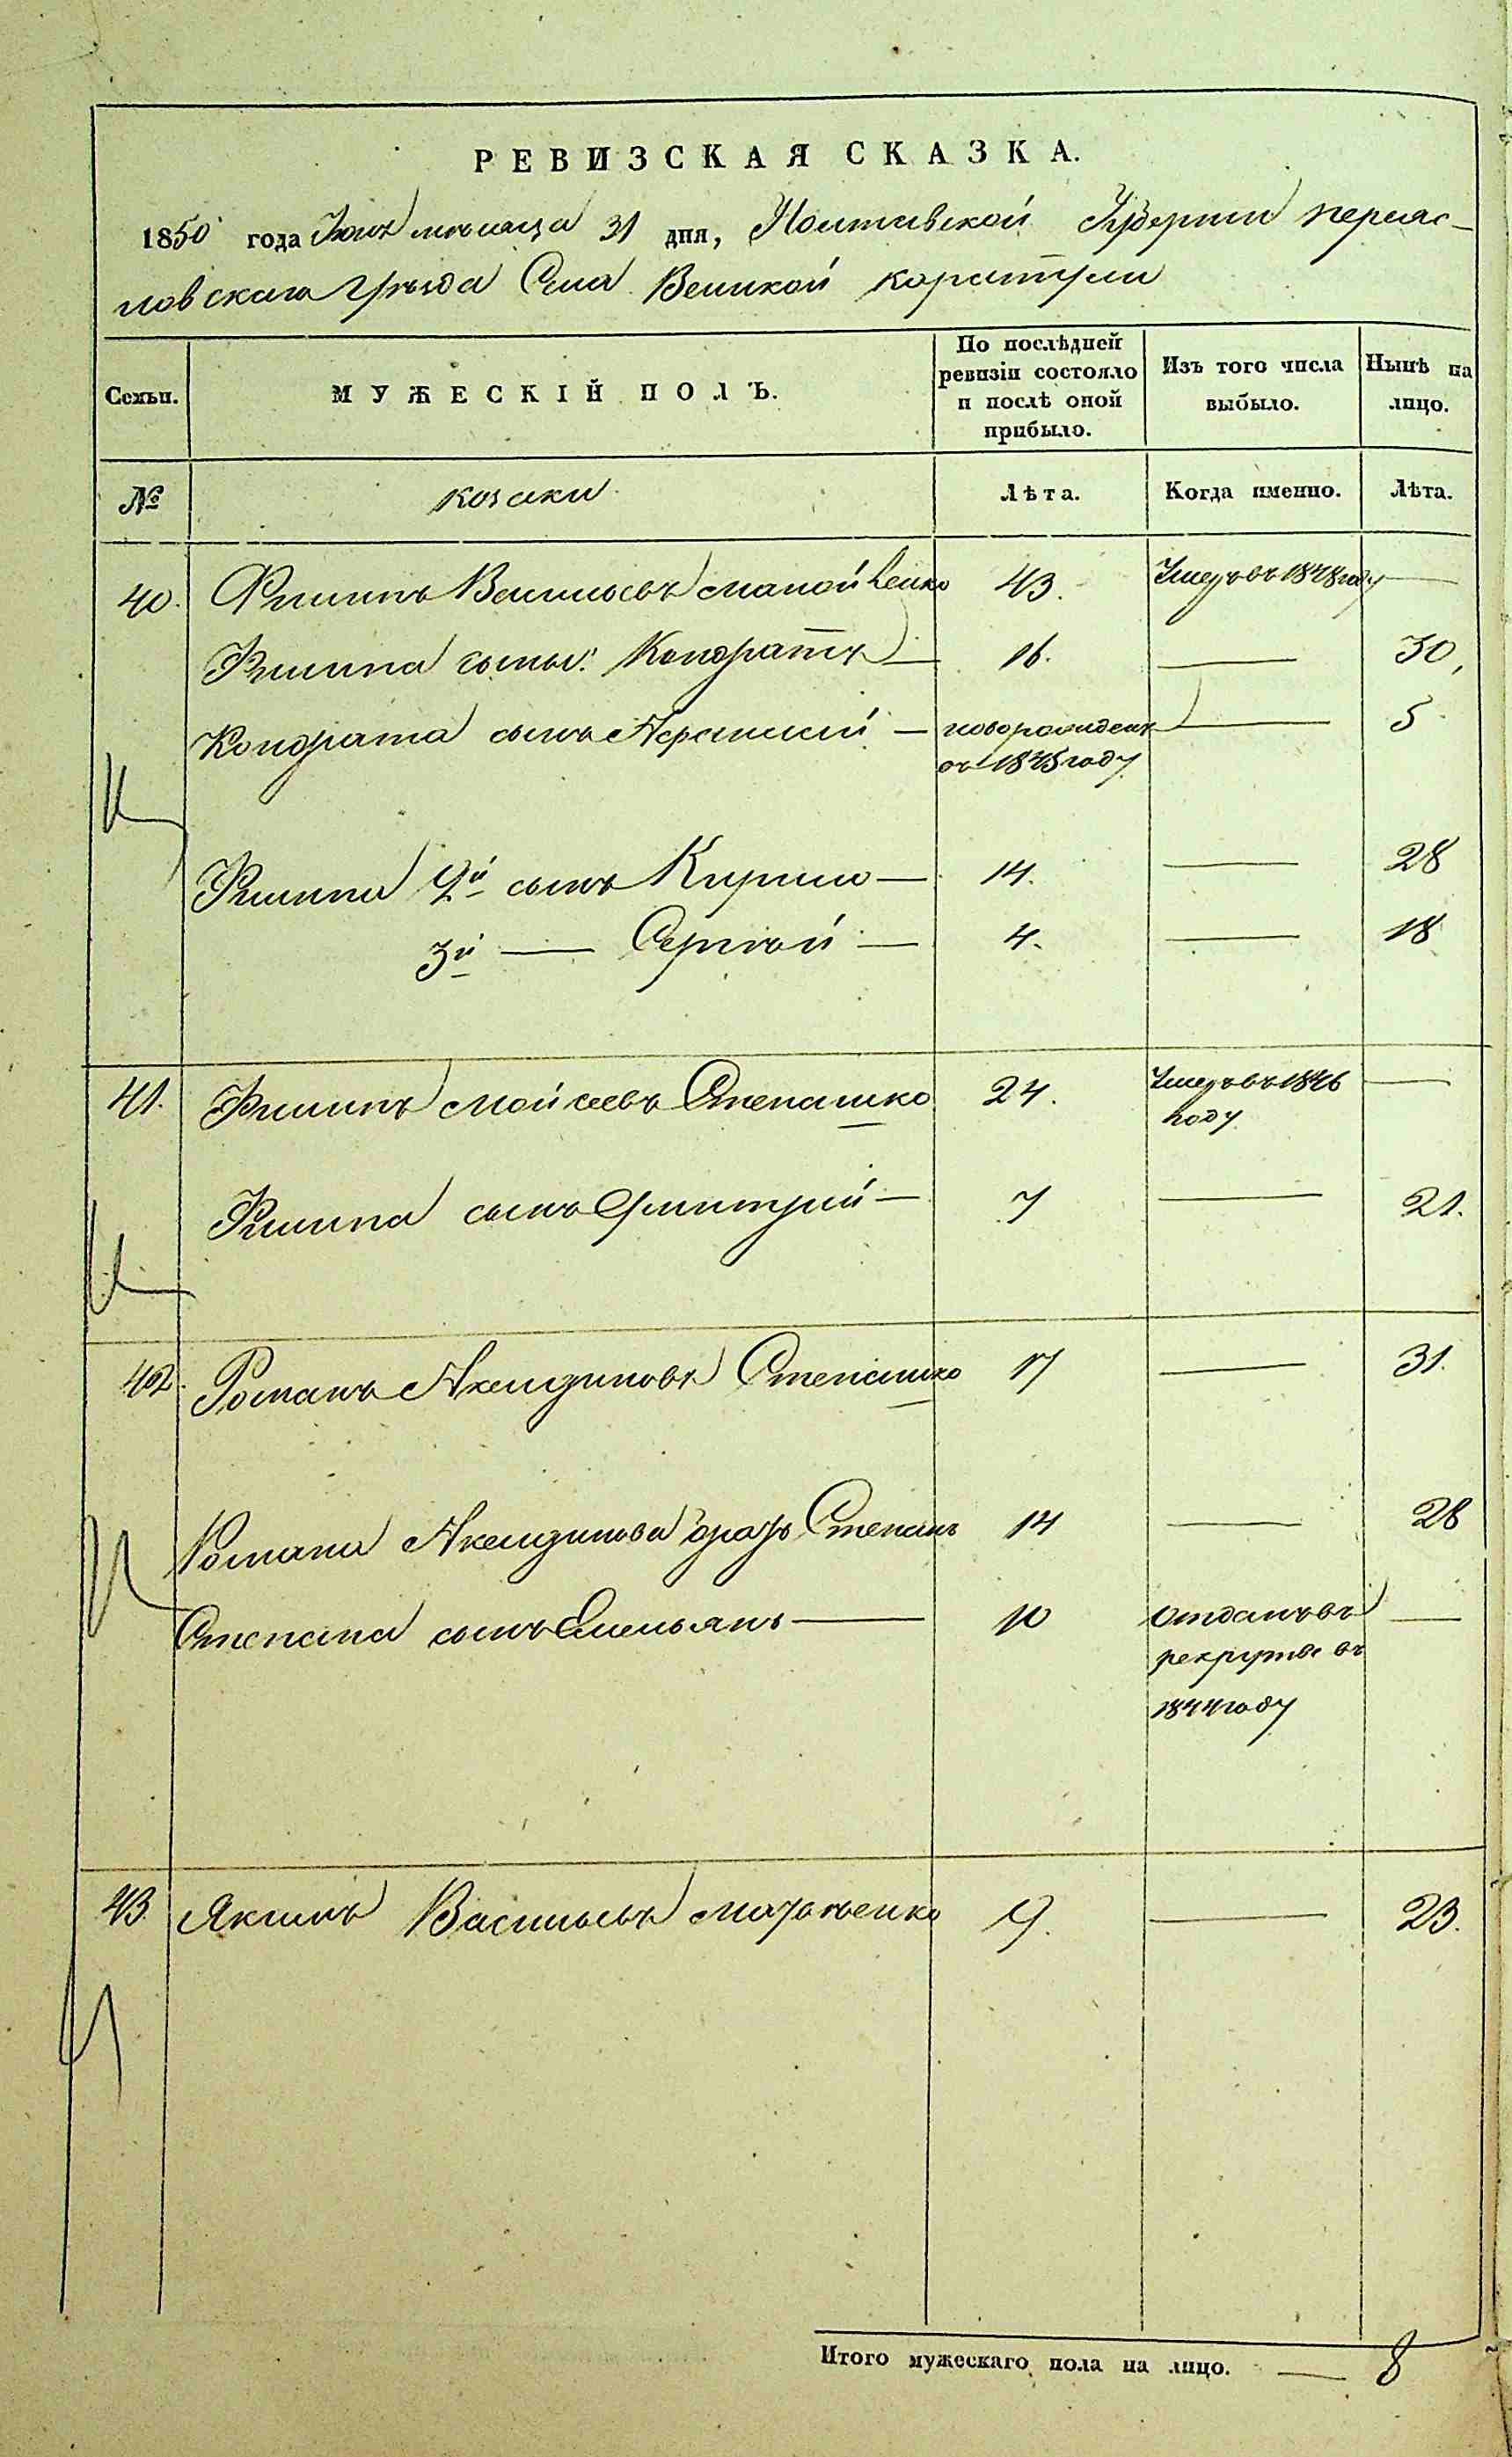 РЕВИЗСКАЯ СКАЗКА.
1850 года Іюля мѣсяца 31 дня, Полтавской Губерніи переяс-
ловскаго Уѣзда Села Великой каратули
Семьи. МУЖЕСКІЙ ПОЛЪ. По послѣдней ревизіи состояло и послѣ оной прибыло. Изъ того числа выбыло. Нынѣ на лицо.
№ козаки Лѣта. Когда именно. Лѣта.
40. Филипъ Васильевъ 43. Умеръ въ 1848 году —
Филипа сынъ: Кондратъ — 16. — 30,
Кондрата сынъ Афанасій — новорожденъ — 5
въ 1845 году
Филипа 2й сынъ Кирило — 14. — 28
3й — Сергѣй — 4. — 18
41. Филипъ Мойсеевъ Степашко 24. Умеръ въ 1846 —
году
Филипа сынъ Дмитрій — 7 — 21.
42. Романъ Акендиновъ Степашко 17 — 31.
Романа Акендинова братъ Степанъ 14 — 28
Степана сынъ Емельянъ — 10 отданъ въ —
рекруты въ
1844 году
43. Якимъ Васильевъ 9. — 23.
Итого мужескаго пола на лицо. — 8